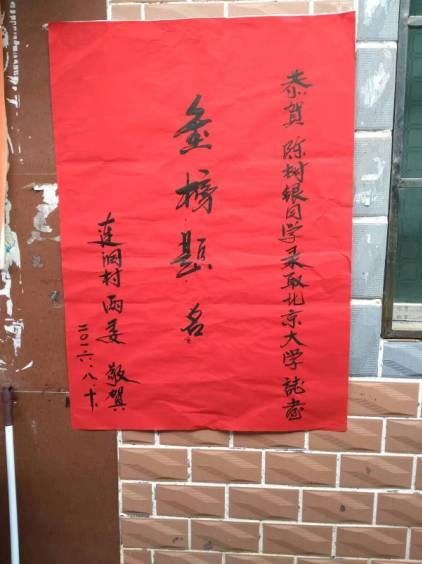 恭贺陈树银同学录取北京大学誌喜
金榜题名
莲洞村两委 敬贺
二〇一六.八.十